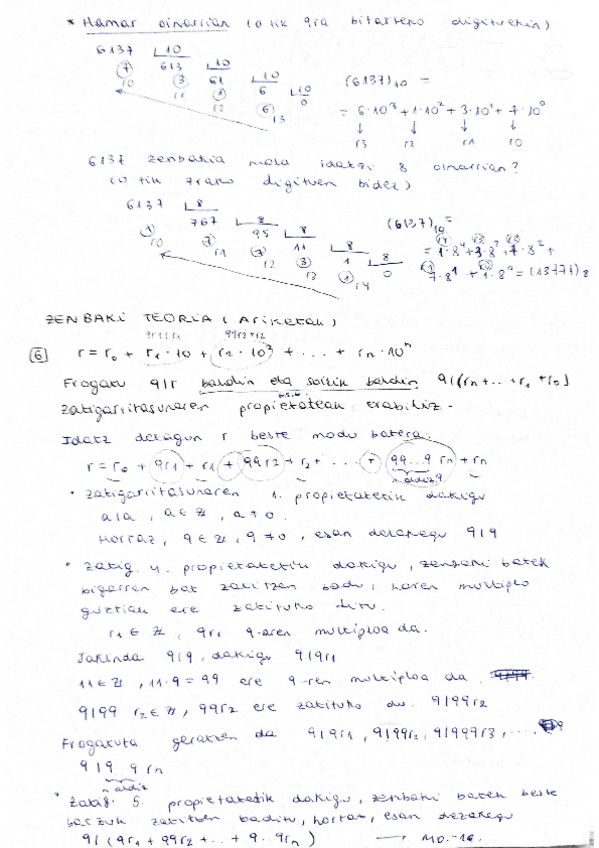 * Hamar oinarrian (0 tik 9ra bitarteko digituekin)
6137 | 10
7 613 | 10
r0 3 61 | 10
r1 1 6 | 10
r2 6 0
r3
(6137)10 =
= 6·10³ + 1·10² + 3·10¹ + 7·10⁰
r3 r2 r1 r0
6137 zenbakia nola idatzi 8 oinarrian?
(0 tik 7rako digituen bidez)
6137 | 8
1 767 | 8
r0 7 95 | 8
r1 7 11 | 8
r2 3 1 | 8
r3 1 0
r4
(6137)10 =
= 1·8⁴ + 3·8³ + 7·8² +
7·8¹ + 1·8⁰ = (13771)8
ZENBAKI TEORIA (Ariketak)
9r1+r1 99r2+r2
6 r = r0 + r1·10 + r2·10² + ... + rn·10ⁿ
Frogatu 9|r baldin eta soilik baldin 9|(rn+...+r1+r0)
zatigarritasunaren propietateak erabiliz.
Idatz dezagun r beste modu batera:
r = r0 + 9r1 + r1 + 99r2 + r2 + ... + 99...9 rn + rn
n aldiz 9
• Zatigarritasunaren 1. propietatetik dakigu
a|a, a ∈ ℤ, a ≠ 0.
Hortaz, 9 ∈ ℤ, 9 ≠ 0, esan dezakegu 9|9
• Zatig. 4. propietatetik dakigu, zenbaki batek
bigarren bat zatitzen badu, haren multiplo
guztiak ere zatituko ditu.
r1 ∈ ℤ, 9r1 9-aren multiploa da.
Jakinda 9|9, dakigu 9|9r1
11 ∈ ℤ, 11·9 = 99 ere 9-ren multiploa da.
9|99 r2 ∈ ℤ, 99r2 ere zatituko du. 9|99r2
Frogatuta geratzen da 9|9r1, 9|99r2, 9|999r3, ...,
9|9...9 rn
n aldiz
• Zatig. 5. propietatetik dakigu, zenbaki batek beste
batzuk zatitzen baditu, hortaz, esan dezakegu
9|(9r1 + 99r2 + ... + 9...9rn)